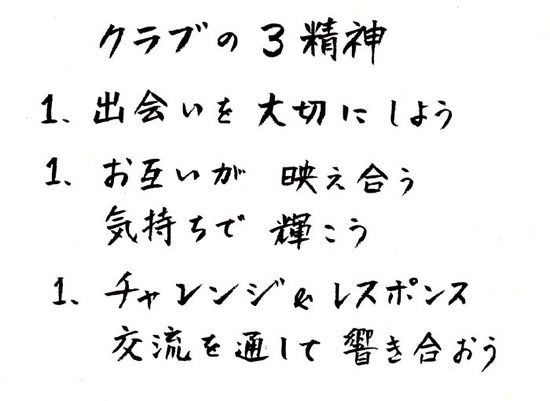 クラブの3精神
1、出会いを大切にしよう
1、お互いが 映え合う
気持ちで 輝こう
1、チャレンジ&レスポンス
交流を通して 響き合おう